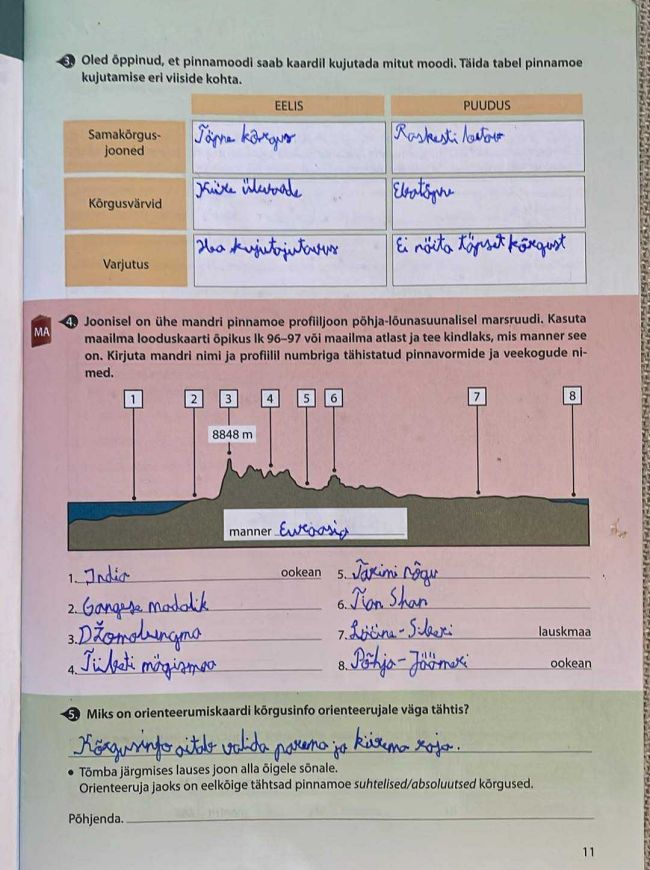 3. Oled õppinud, et pinnamoodi saab kaardil kujutada mitut moodi. Täida tabel pinnamoe
kujutamise eri viiside kohta.
EELIS PUUDUS
Samakõrgus-
jooned
Täpne kõrgus
Raskesti loetav
Kõrgusvärvid
Kiire ülevaade
Ebatäpne
Varjutus
Hea kujutajutavus
Ei näita täpset kõrgust
MA
4. Joonisel on ühe mandri pinnamoe profiiljoon põhja-lõunasuunalisel marsruudi. Kasuta
maailma looduskaarti õpikus lk 96–97 või maailma atlast ja tee kindlaks, mis manner see
on. Kirjuta mandri nimi ja profiilil numbriga tähistatud pinnavormide ja veekogude ni-
med.
1 2 3 4 5 6 7 8
8848 m
manner Euraasia
1. India ookean
2. Gangese madalik
3. Džomolungma
4. Tiibeti mägismaa
5. Tarimi nõgu
6. Tian Shan
7. Lääne-Siberi lauskmaa
8. Põhja-Jäämeri ookean
5. Miks on orienteerumiskaardi kõrgusinfo orienteerujale väga tähtis?
Kõrgusinfo aitab valida parema ja kiirema raja.
• Tõmba järgmises lauses joon alla õigele sõnale.
Orienteeruja jaoks on eelkõige tähtsad pinnamoe suhtelised/absoluutsed kõrgused.
Põhjenda.
11